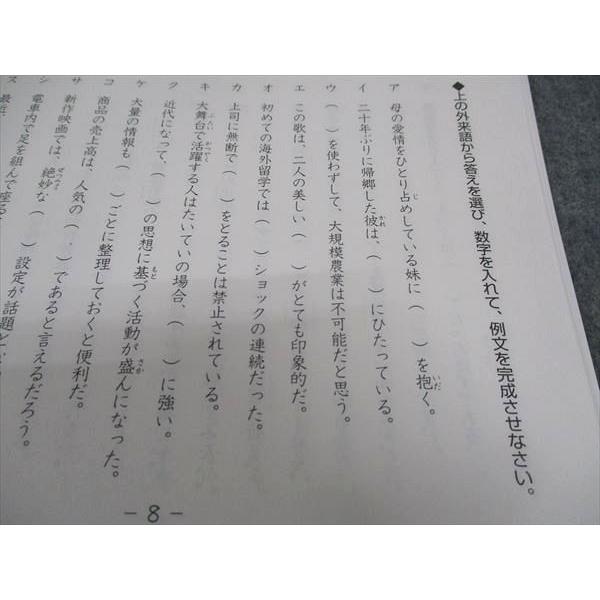 ◆上の外来語から答えを選び、数字を入れて、例文を完成させなさい。
ア 母の愛情をひとり占めしている妹に（　）を抱く。
イ 二十年ぶりに帰郷した彼は、（　）にひたっている。
ウ（　）を使わずして、大規模農業は不可能だと思う。
エ この歌は、二人の美しい（　）がとても印象的だ。
オ 初めての海外留学では（　）ショックの連続だった。
カ 上司に無断で（　）をとることは禁止されている。
キ 大舞台で活躍する人はたいていの場合、（　）に強い。
ク 近代になって、（　）の思想に基づく活動が盛んになった。
ケ 大量の情報も（　）ごとに整理しておくと便利だ。
コ 商品の売上高は、人気の（　）であると言えるだろう。
サ 新作映画では、絶妙な（　）設定が話題と
シ 電車内で足を組んで座る
ス 最近、
- 8 -